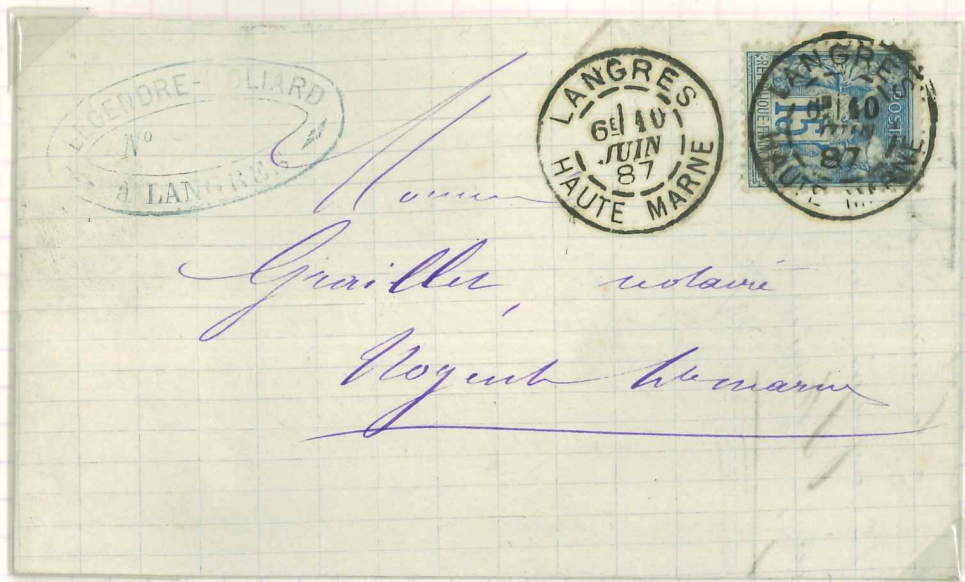 LEGENDRE-
No
à LANGRES
LANGRES
6E 10
JUIN
87
HAUTE MARNE
LANGRES
6E 10
JUIN
87
HAUTE MARNE
15
POSTE
Graillet, notaire
Nogent hte marne